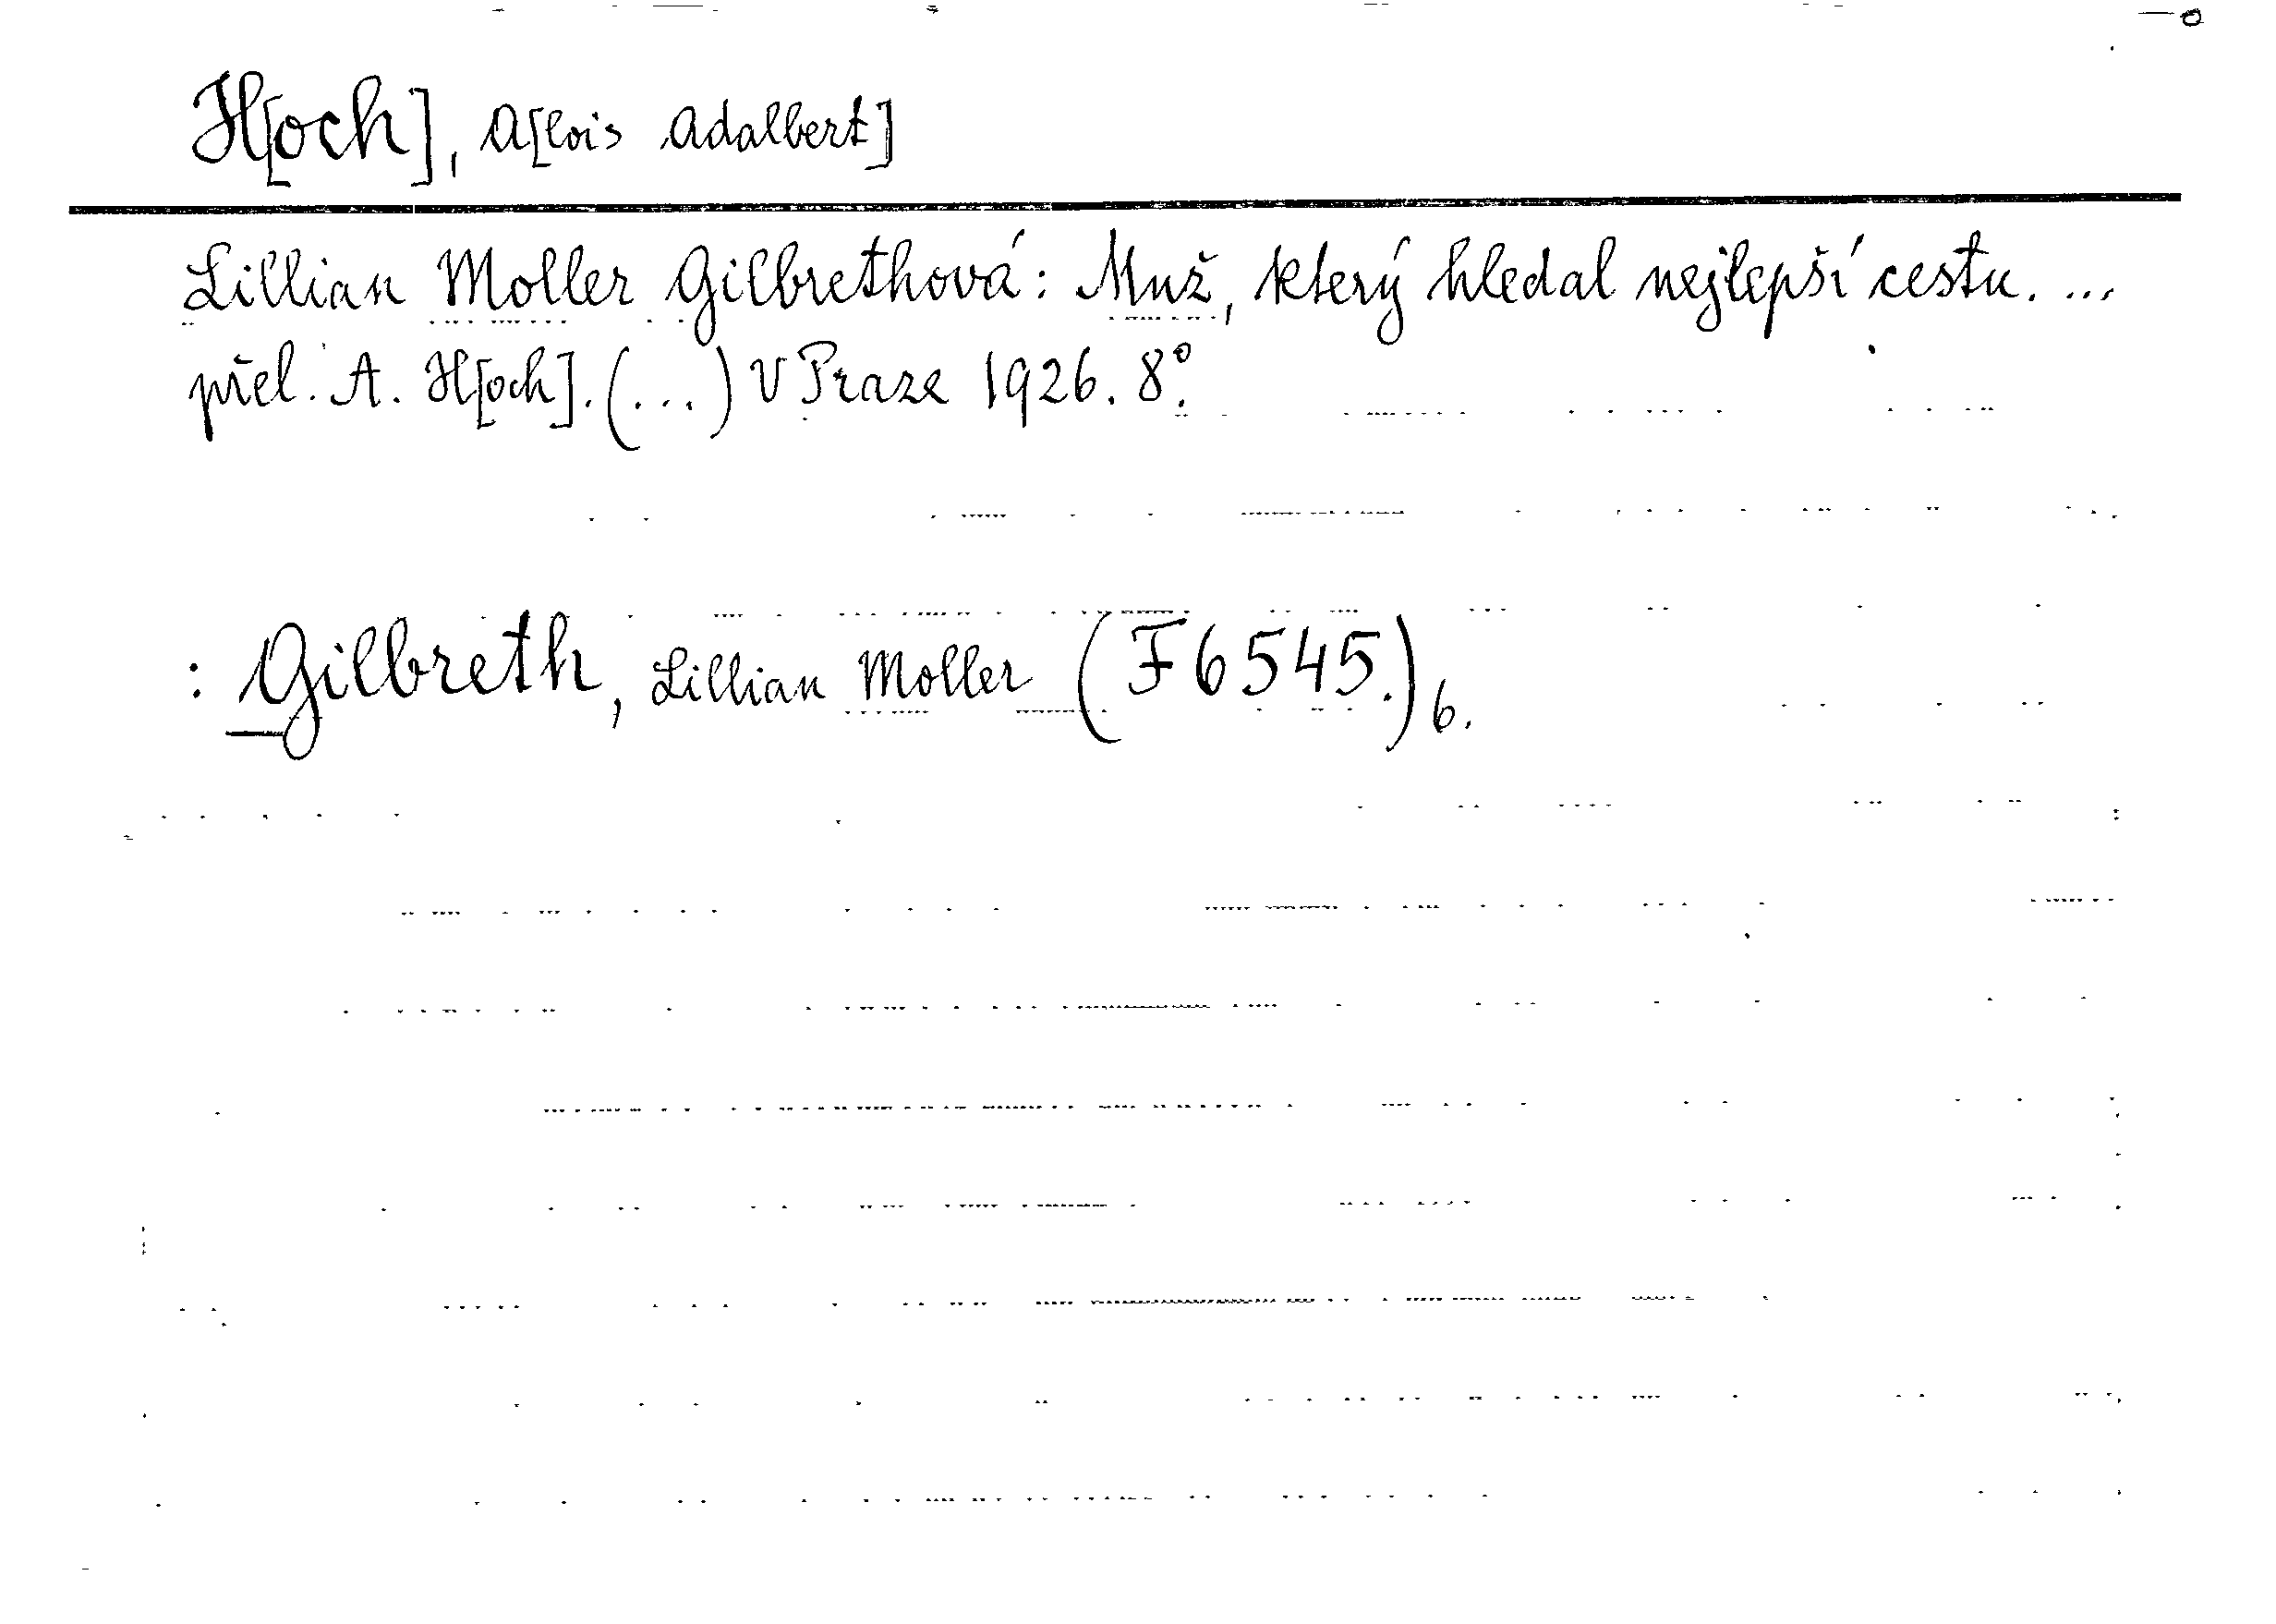 H[och], A[lois Adalbert]
Lillian Moller Gilbrethová: Muž, který hledal nejlepší cestu. ...
přel. A. H[och]. (...) V Praze 1926. 8º.
: Gilbreth, Lillian Moller (F6545.) 6.